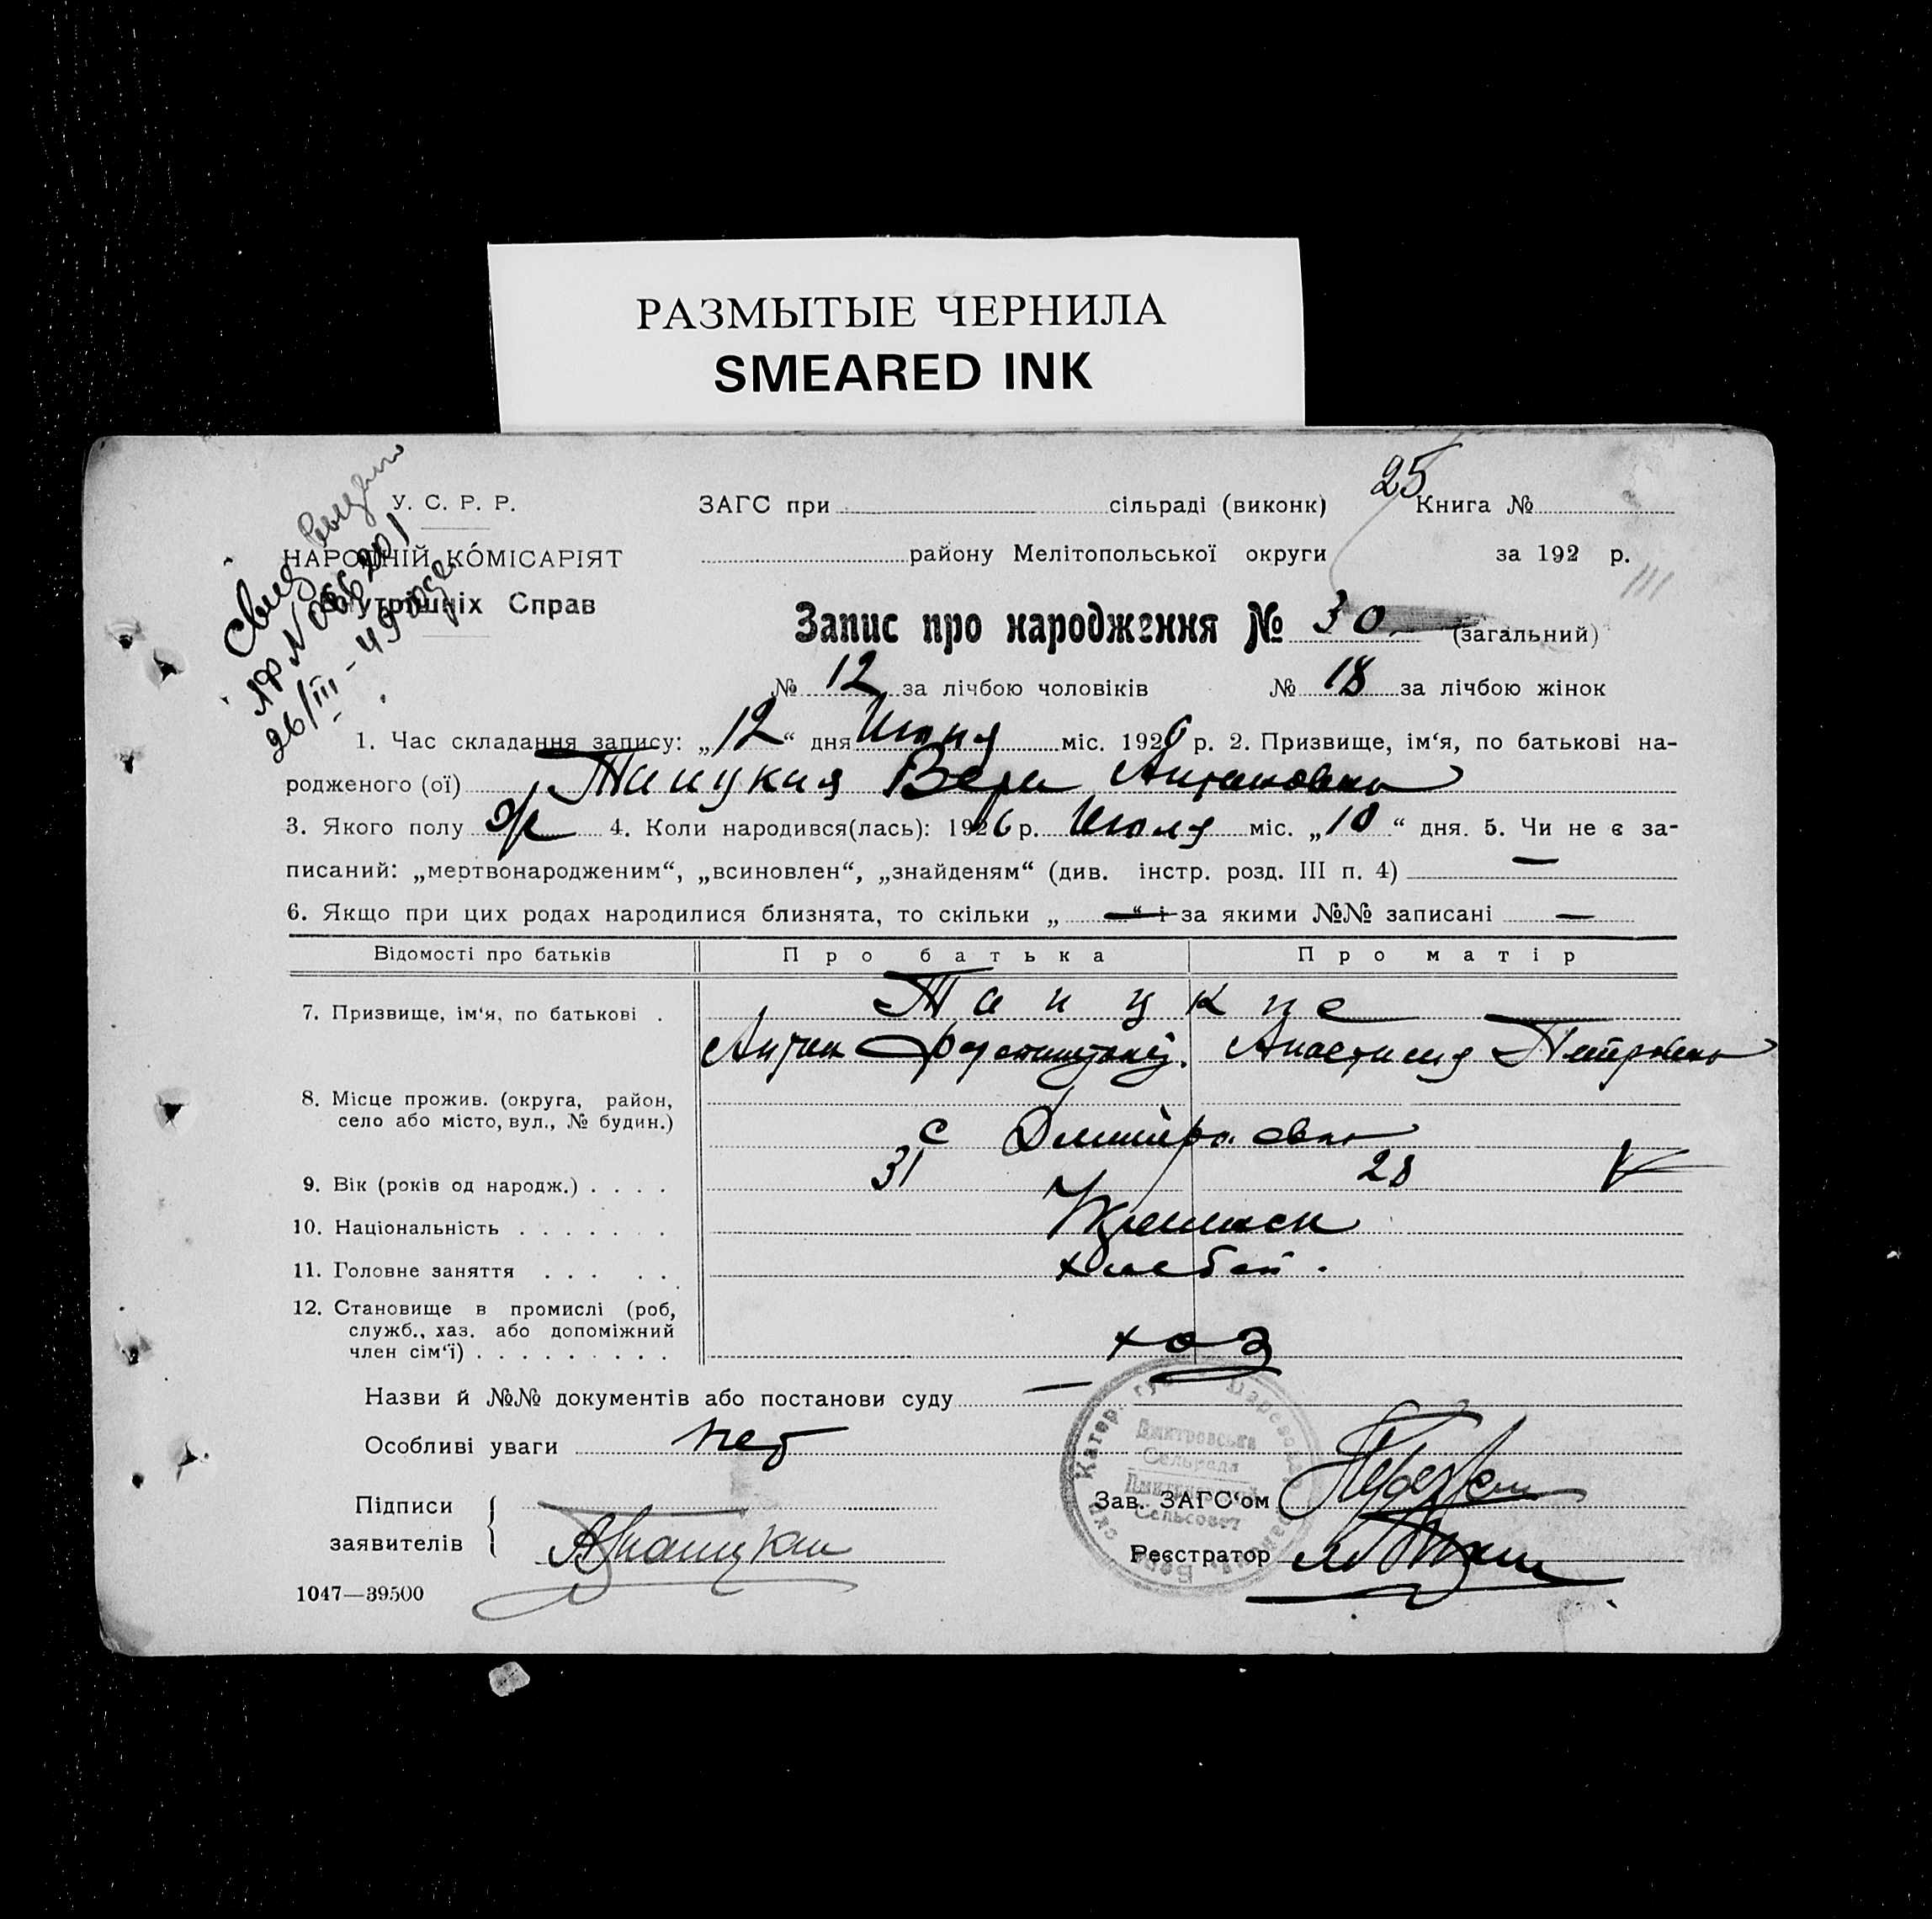 РАЗМЫТЫЕ ЧЕРНИЛА
SMEARED INK
У. С. Р. Р.
НАРОДНІЙ КОМІСАРІЯТ
Внутрішніх Справ
Свид выдано
26/III-49
25
ЗАГС при сільраді (виконк) Книга №
району Мелітопольської округи за 192 р.
Запис про народження № 30 (загальний)
№ 12 за лічбою чоловіків № 18 за лічбою жінок
1. Час складання запису: „12“ дня Июля міс. 1926 р. 2. Призвище, ім‘я, по батькові на-
родженого (ої) Тануцкия Вера Антоновна
3. Якого полу ж 4. Коли народився(лась): 1926 р. Июля міс. „10“ дня. 5. Чи не є за-
писаний: „мертвонародженим“, „всиновлен“, „знайденям“ (див. інстр. розд. III п. 4) —
6. Якщо при цих родах народилися близнята, то скільки „—“ і за якими №№ записані —
Відомості про батьків Про батька Про матір
7. Призвище, ім‘я, по батькові .
Антон Анастасия Петровна
8. Місце прожив. (округа, район,
село або місто, вул., № будин.)
с Дмитровка
9. Вік (років од народж.) . . . . 31 28
10. Національність . . . . . . .
11. Головне заняття . . . . . хлебоп.
12. Становище в промислі (роб,
служб., хаз. або допоміжний
член сім‘ї) . . . . . . . . . хоз
Назви й №№ документів або постанови суду —
Особливі уваги нет
Дмитровська
Сельрада
Сельсовет
Підписи
заявителів
Зав. ЗАГС‘ом
Реєстратор
1047—39500